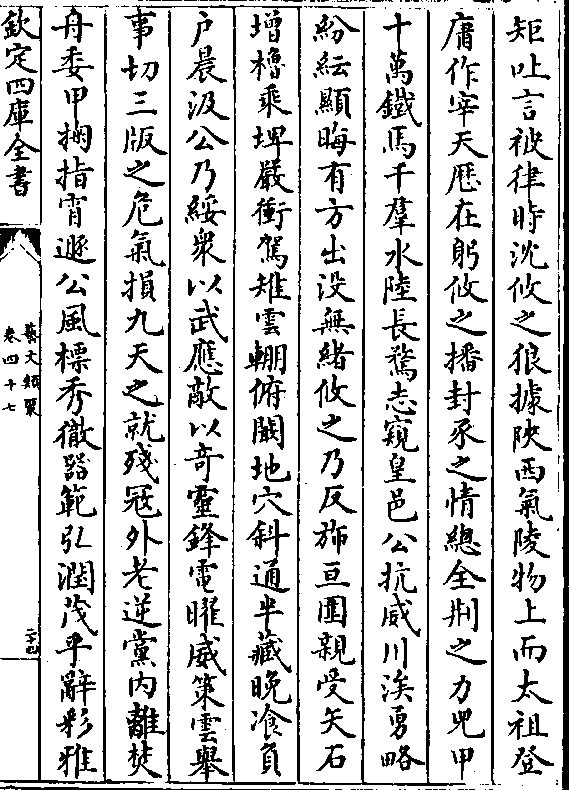 矩吐言被律時沈攸之狼據陝西氣陵物上而太祖登
庸作宰天厯在躬攸之播封豕之情總全荆之力兕甲
十萬鐵馬千羣水陸長騖志窺皇邑公抗威川涘勇略
紛紜顯晦有方出没無緒攸之乃反斾亘圍親受矢石
增櫓乘埤嚴衝駕雉雲輣俯闞地穴斜通半藏晚飡負
户晨汲公乃綏衆以武應敵以奇靈鋒電曜威策雲舉
事切三版之危氣損九天之就殘冦外老逆黨内離焚
舟委甲掬指宵遯公風標秀徹器範弘潤茂乎辭彩雅
欽定四庫全書
藝文類聚
卷四十七
二十四